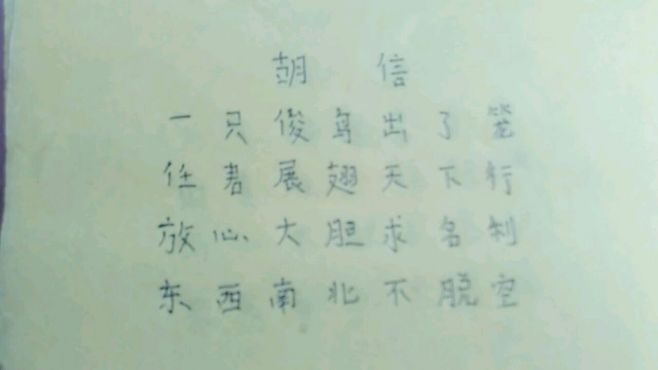 胡信
一只俊鸟出了笼
任君展翅天下行
放心大胆求名利
东西南北不脱空